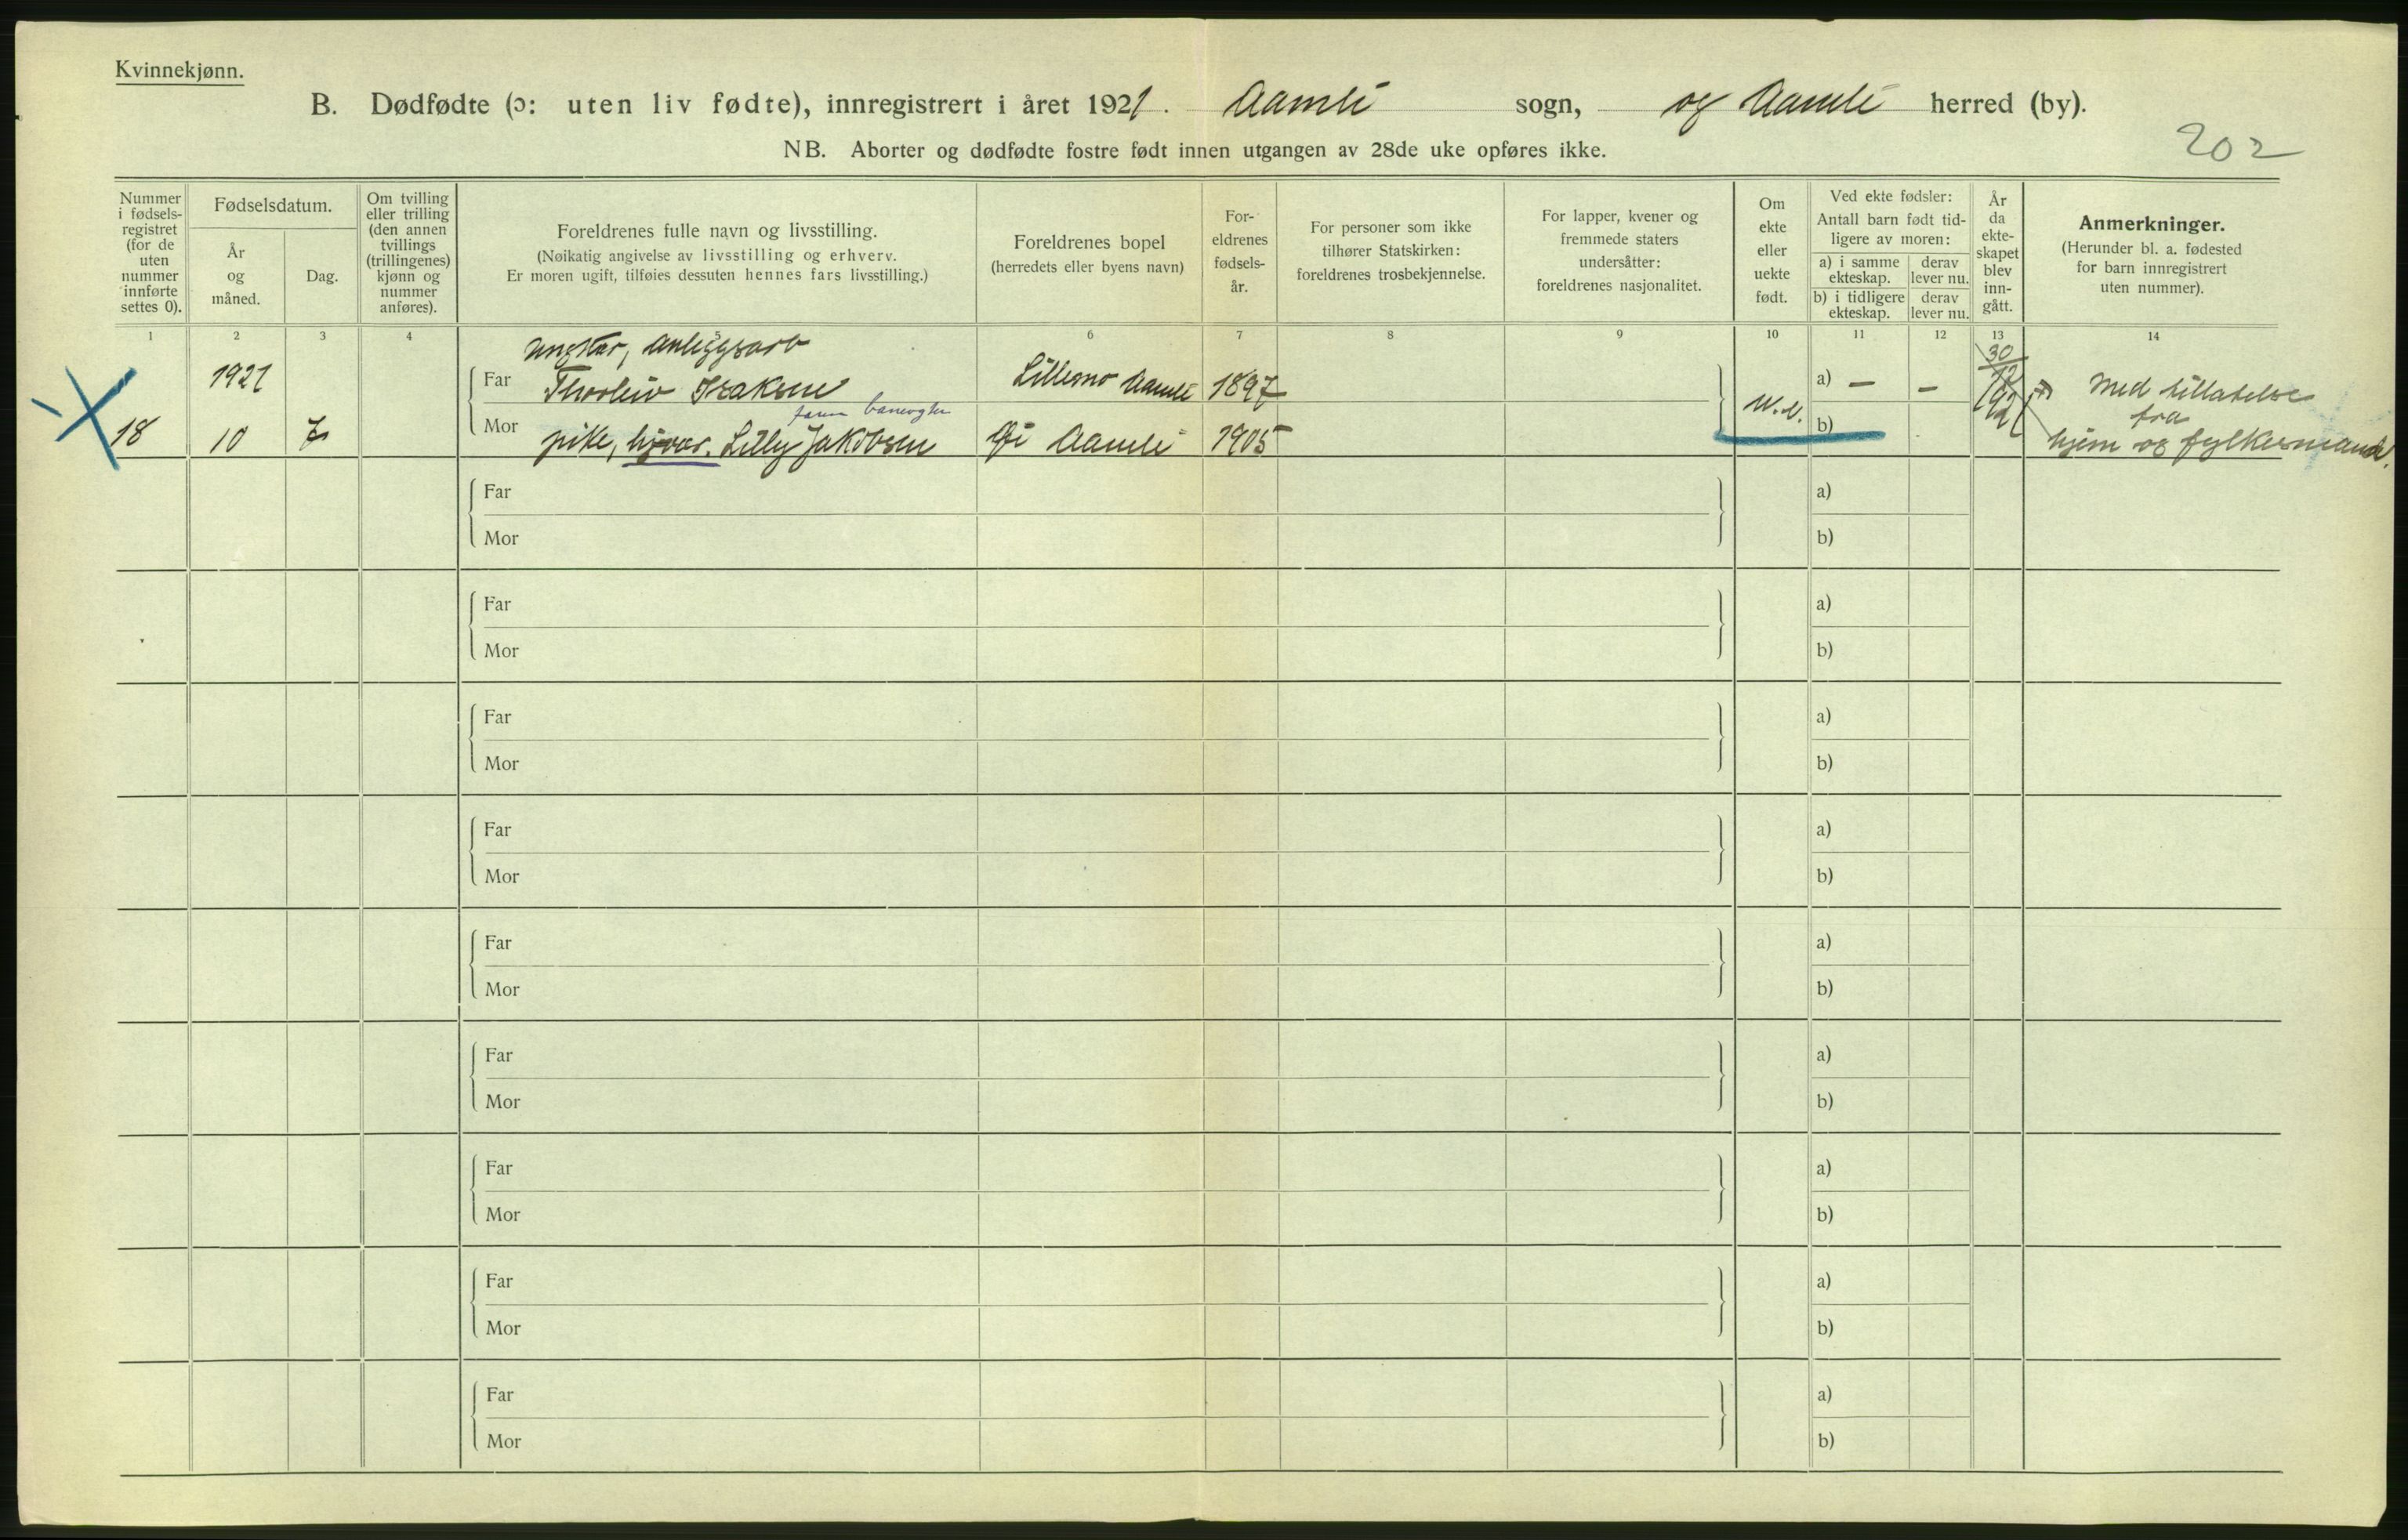 Kvinnekjønn.
B. Dødfødte (ɔ: uten liv fødte), innregistrert i året 1921. Aamli sogn, og Aamli herred (by).
NB. Aborter og dødfødte fostre født innen utgangen av 28de uke opføres ikke.
202
Nummer i fødsels-registret (for de uten nummer innførte settes 0).
Fødselsdatum.
År og måned.
Dag.
Om tvilling eller trilling (den annen tvillings (trillingenes) kjønn og nummer anføres).
Foreldrenes fulle navn og livsstilling.
(Nøikatig angivelse av livsstilling og erhverv.
Er moren ugift, tilføies dessuten hennes fars livsstilling.)
Foreldrenes bopel
(herredets eller byens navn)
For-eldrenes fødsels-år.
For personer som ikke tilhører Statskirken: foreldrenes trosbekjennelse.
For lapper, kvener og fremmede staters undersåtter: foreldrenes nasjonalitet.
Om ekte eller uekte født.
Ved ekte fødsler:
Antall barn født tid-ligere av moren:
a) i samme ekteskap.
derav lever nu.
b) i tidligere ekteskap.
derav lever nu.
År da ekte-skapet blev inn-gått.
Anmerkninger.
(Herunder bl. a. fødested for barn innregistrert uten nummer).
1 2 3 4 5 6 7 8 9 10 11 12 13 14
ungkar, anleggsarb
1921 Far Thorleiv Isaksen Aamli 1897 a) — — 30/12 1921 Med tillatelse
fra
18 10 7 Mor pike, Lilly Jakobsen Aamli 1905 u.e. b) hjem og fylkesmand.
Far a)
Mor b)
Far a)
Mor b)
Far a)
Mor b)
Far a)
Mor b)
Far a)
Mor b)
Far a)
Mor b)
Far a)
Mor b)
Far a)
Mor b)
Far a)
Mor b)